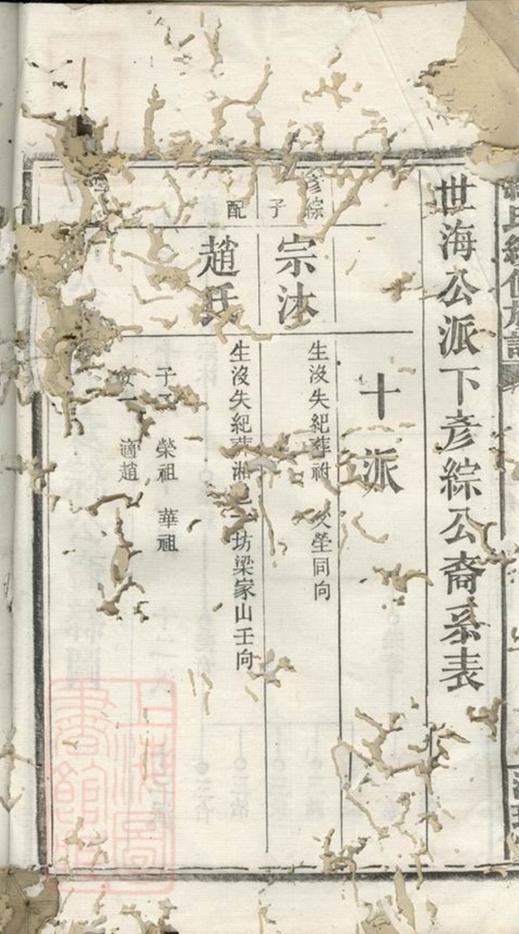 世海公派下彥綜公裔系表
十派
彥綜子
宗沐
生沒失紀葬祔父塋同向
配
趙氏
生沒失紀葬湘
坊梁家山壬向
子二 榮祖 華祖
女一 適趙
上海圖書館藏